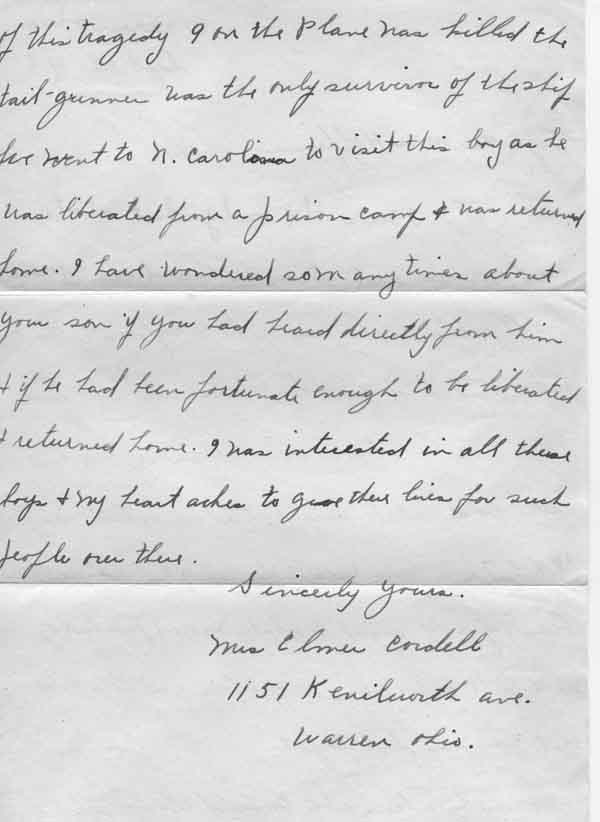 of this tragedy 9 on the Plane was killed the
tail-gunner was the only survivor of the ship
we went to N. Carolina to visit this boy as he
was liberated from a prison camp & was returned
home. I have wondered so many times about
your son if you had heard directly from him
& if he had been fortunate enough to be liberated
& returned home. I was interested in all these
boys & my heart aches to gave there lives for such
people over there.
Sincerly yours.
Mrs Elmer Cordell
1151 Kenilworth ave.
Warren Ohio.